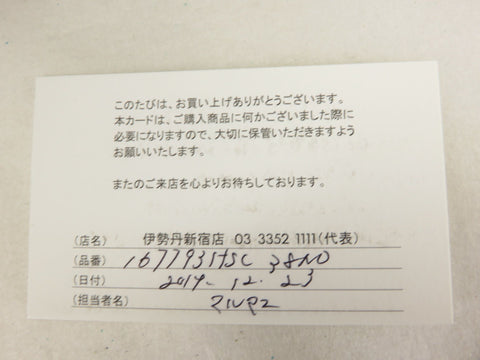 このたびは、お買い上げありがとうございます。
本カードは、ご購入商品に何かございました際に
必要になりますので、大切に保管いただきますよう
お願いいたします。
またのご来店を心よりお待ちしております。
(店名) 伊勢丹新宿店 03 3352 1111(代表)
(品番)
(日付) 12. 23
(担当者名)